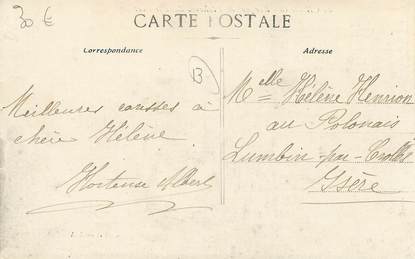 30 €
CARTE POSTALE
Correspondance
Adresse
13
Melle Hélène Henrion
au Polonais
Lumbin par Crolles
Isère
Meilleures causses à
chère Hélène.
Hortense Albert